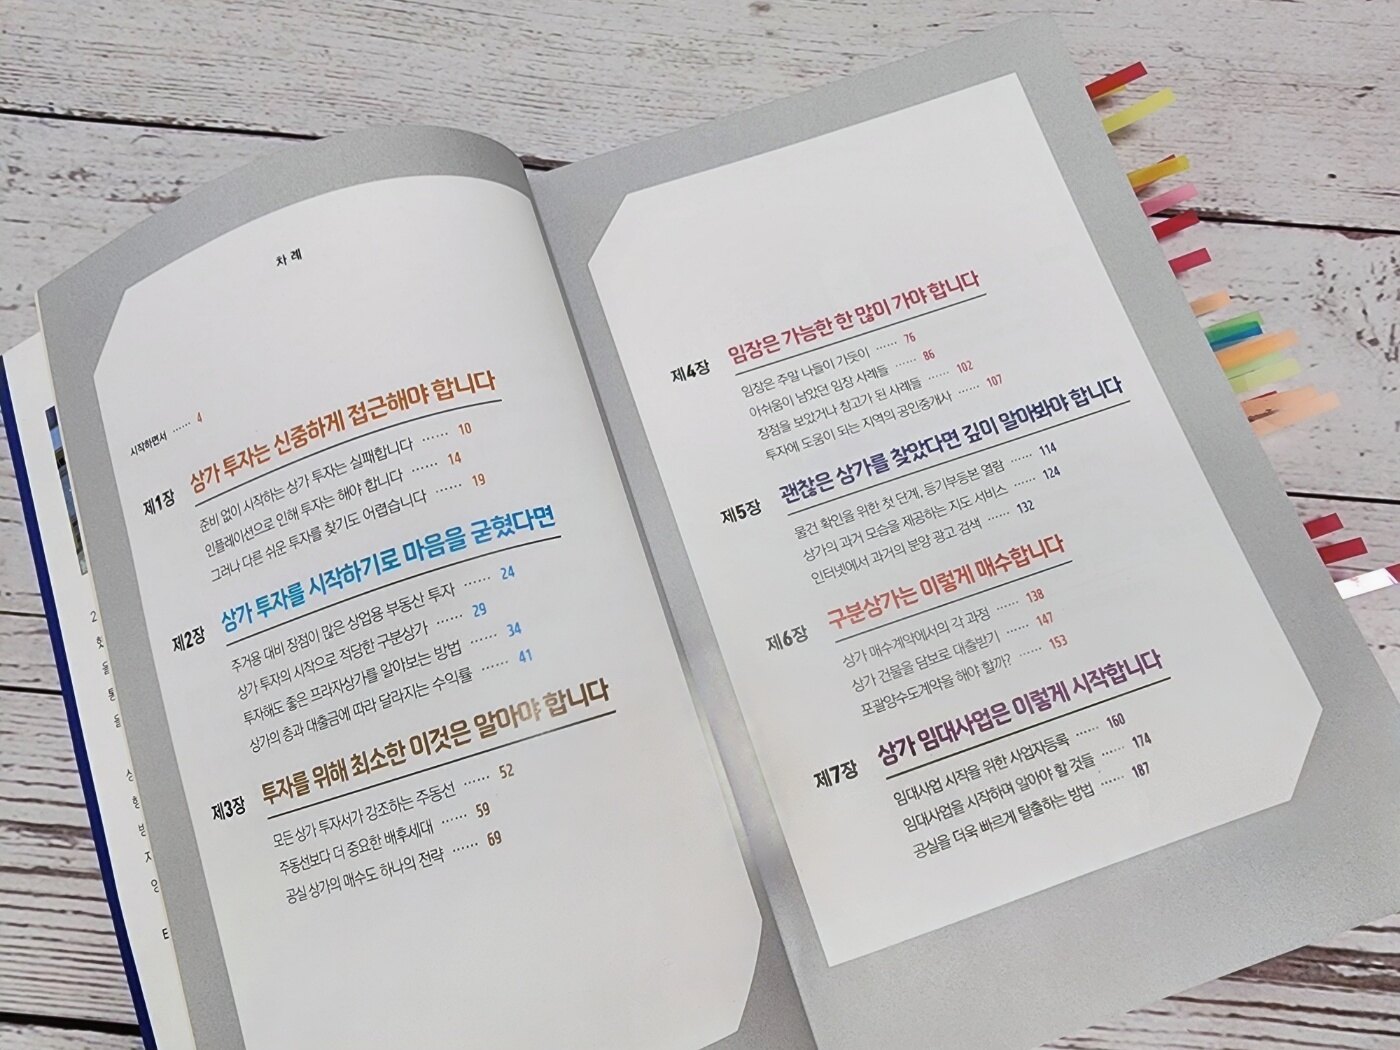 차 례
시작하면서 …… 4
제1장 상가 투자는 신중하게 접근해야 합니다
준비 없이 시작하는 상가 투자는 실패합니다 …… 10
인플레이션으로 인해 투자는 해야 합니다 …… 14
그러나 다른 쉬운 투자를 찾기도 어렵습니다 …… 19
제2장 상가 투자를 시작하기로 마음을 굳혔다면
주거용 대비 장점이 많은 상업용 부동산 투자 …… 24
상가 투자의 시작으로 적당한 구분상가 …… 29
투자해도 좋은 프라자상가를 알아보는 방법 …… 34
상가의 층과 대출금에 따라 달라지는 수익률 …… 41
제3장 투자를 위해 최소한 이것은 알아야 합니다
모든 상가 투자서가 강조하는 주동선 …… 52
주동선보다 더 중요한 배후세대 …… 59
공실 상가의 매수도 하나의 전략 …… 69
제4장 임장은 가능한 한 많이 가야 합니다
임장은 주말 나들이 가듯이 …… 76
아쉬움이 남았던 임장 사례들 …… 86
장점을 보았거나 참고가 된 사례들 …… 102
투자에 도움이 되는 지역의 공인중개사 …… 107
제5장 괜찮은 상가를 찾았다면 깊이 알아봐야 합니다
물건 확인을 위한 첫 단계, 등기부등본 열람 …… 114
상가의 과거 모습을 제공하는 지도 서비스 …… 124
인터넷에서 과거의 분양 광고 검색 …… 132
제6장 구분상가는 이렇게 매수합니다
상가 매수계약에서의 각 과정 …… 138
상가 건물을 담보로 대출받기 …… 147
포괄양수도계약을 해야 할까? …… 153
제7장 상가 임대사업은 이렇게 시작합니다
임대사업 시작을 위한 사업자등록 …… 160
임대사업을 시작하며 알아야 할 것들 …… 174
공실을 더욱 빠르게 탈출하는 방법 …… 187